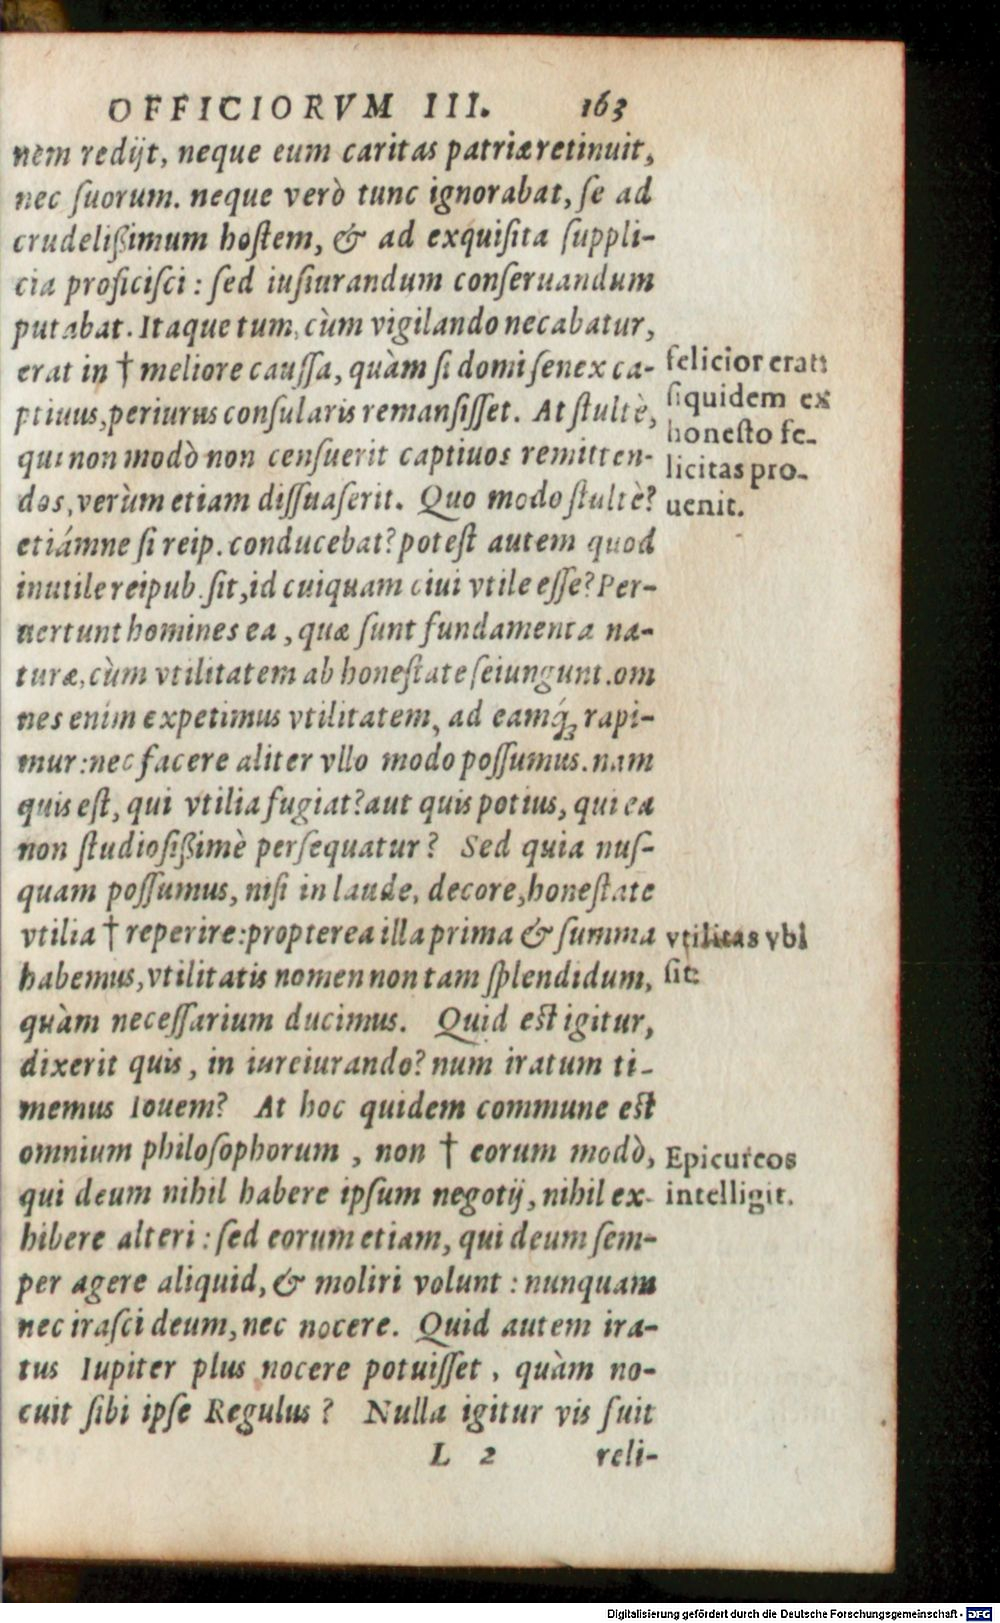 OFFICIORVM III. 163
nem redijt, neque eum caritas patriæ retinuit,
nec ſuorum. neque verò tunc ignorabat, ſe ad
crudelißimum hoſtem, & ad exquiſita ſuppli-
cia proficiſci: ſed iuſiurandum conſeruandum
putabat. Itaque tum, cùm vigilando necabatur,
erat in † meliore cauſſa, quàm ſi domi ſenex ca-
ptiuus, periurus conſularis remanſiſſet. At ſtultè,
qui non modò non cenſuerit captiuos remitten-
dos, verùm etiam diſſuaſerit. Quo modo ſtultè?
etiámne ſi reip. conducebat? poteſt autem quod
inutile reipub. ſit, id cuiquam ciui vtile eſſe? Per-
uertunt homines ea, quæ ſunt fundamenta na-
turæ, cùm vtilitatem ab honeſtate ſeiungunt. om
nes enim expetimus vtilitatem, ad eamq́ꝫ rapi-
mur: nec facere aliter vllo modo poſſumus. nam
quis eſt, qui vtilia fugiat? aut quis potius, qui ea
non ſtudioſißimè perſequatur? Sed quia nuſ-
quam poſſumus, niſi in laude, decore, honeſtate
vtilia † reperire: propterea illa prima & ſumma
habemus, vtilitatis nomen non tam ſplendidum,
quàm neceſſarium ducimus. Quid eſt igitur,
dixerit quis, in iureiurando? num iratum ti-
memus Iouem? At hoc quidem commune eſt
omnium philoſophorum, non † eorum modò,
qui deum nihil habere ipſum negotij, nihil ex-
hibere alteri: ſed eorum etiam, qui deum ſem-
per agere aliquid, & moliri volunt: nunquam
nec iraſci deum, nec nocere. Quid autem ira-
tus Iupiter plus nocere potuiſſet, quàm no-
cuit ſibi ipſe Regulus? Nulla igitur vis fuit
L 2 reli-
felicior erat:
ſiquidem ex
honeſto fe-
licitas pro-
uenit.
vtilitas vbi
ſit:
Epicureos
intelligit.
Digitalisierung gefördert durch die Deutsche Forschungsgemeinschaft - DFG